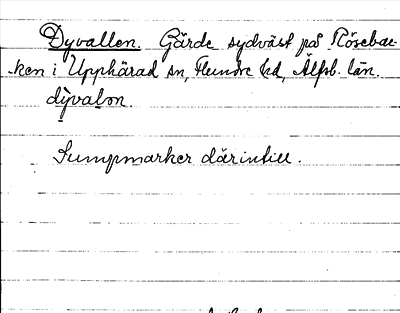 Dyvallen. Gärde sydväst på Rösebac-
ken i Upphärad sn, Flundre hd, Älfsb. län.
dỳvalən.
Sumpmarker därintill.